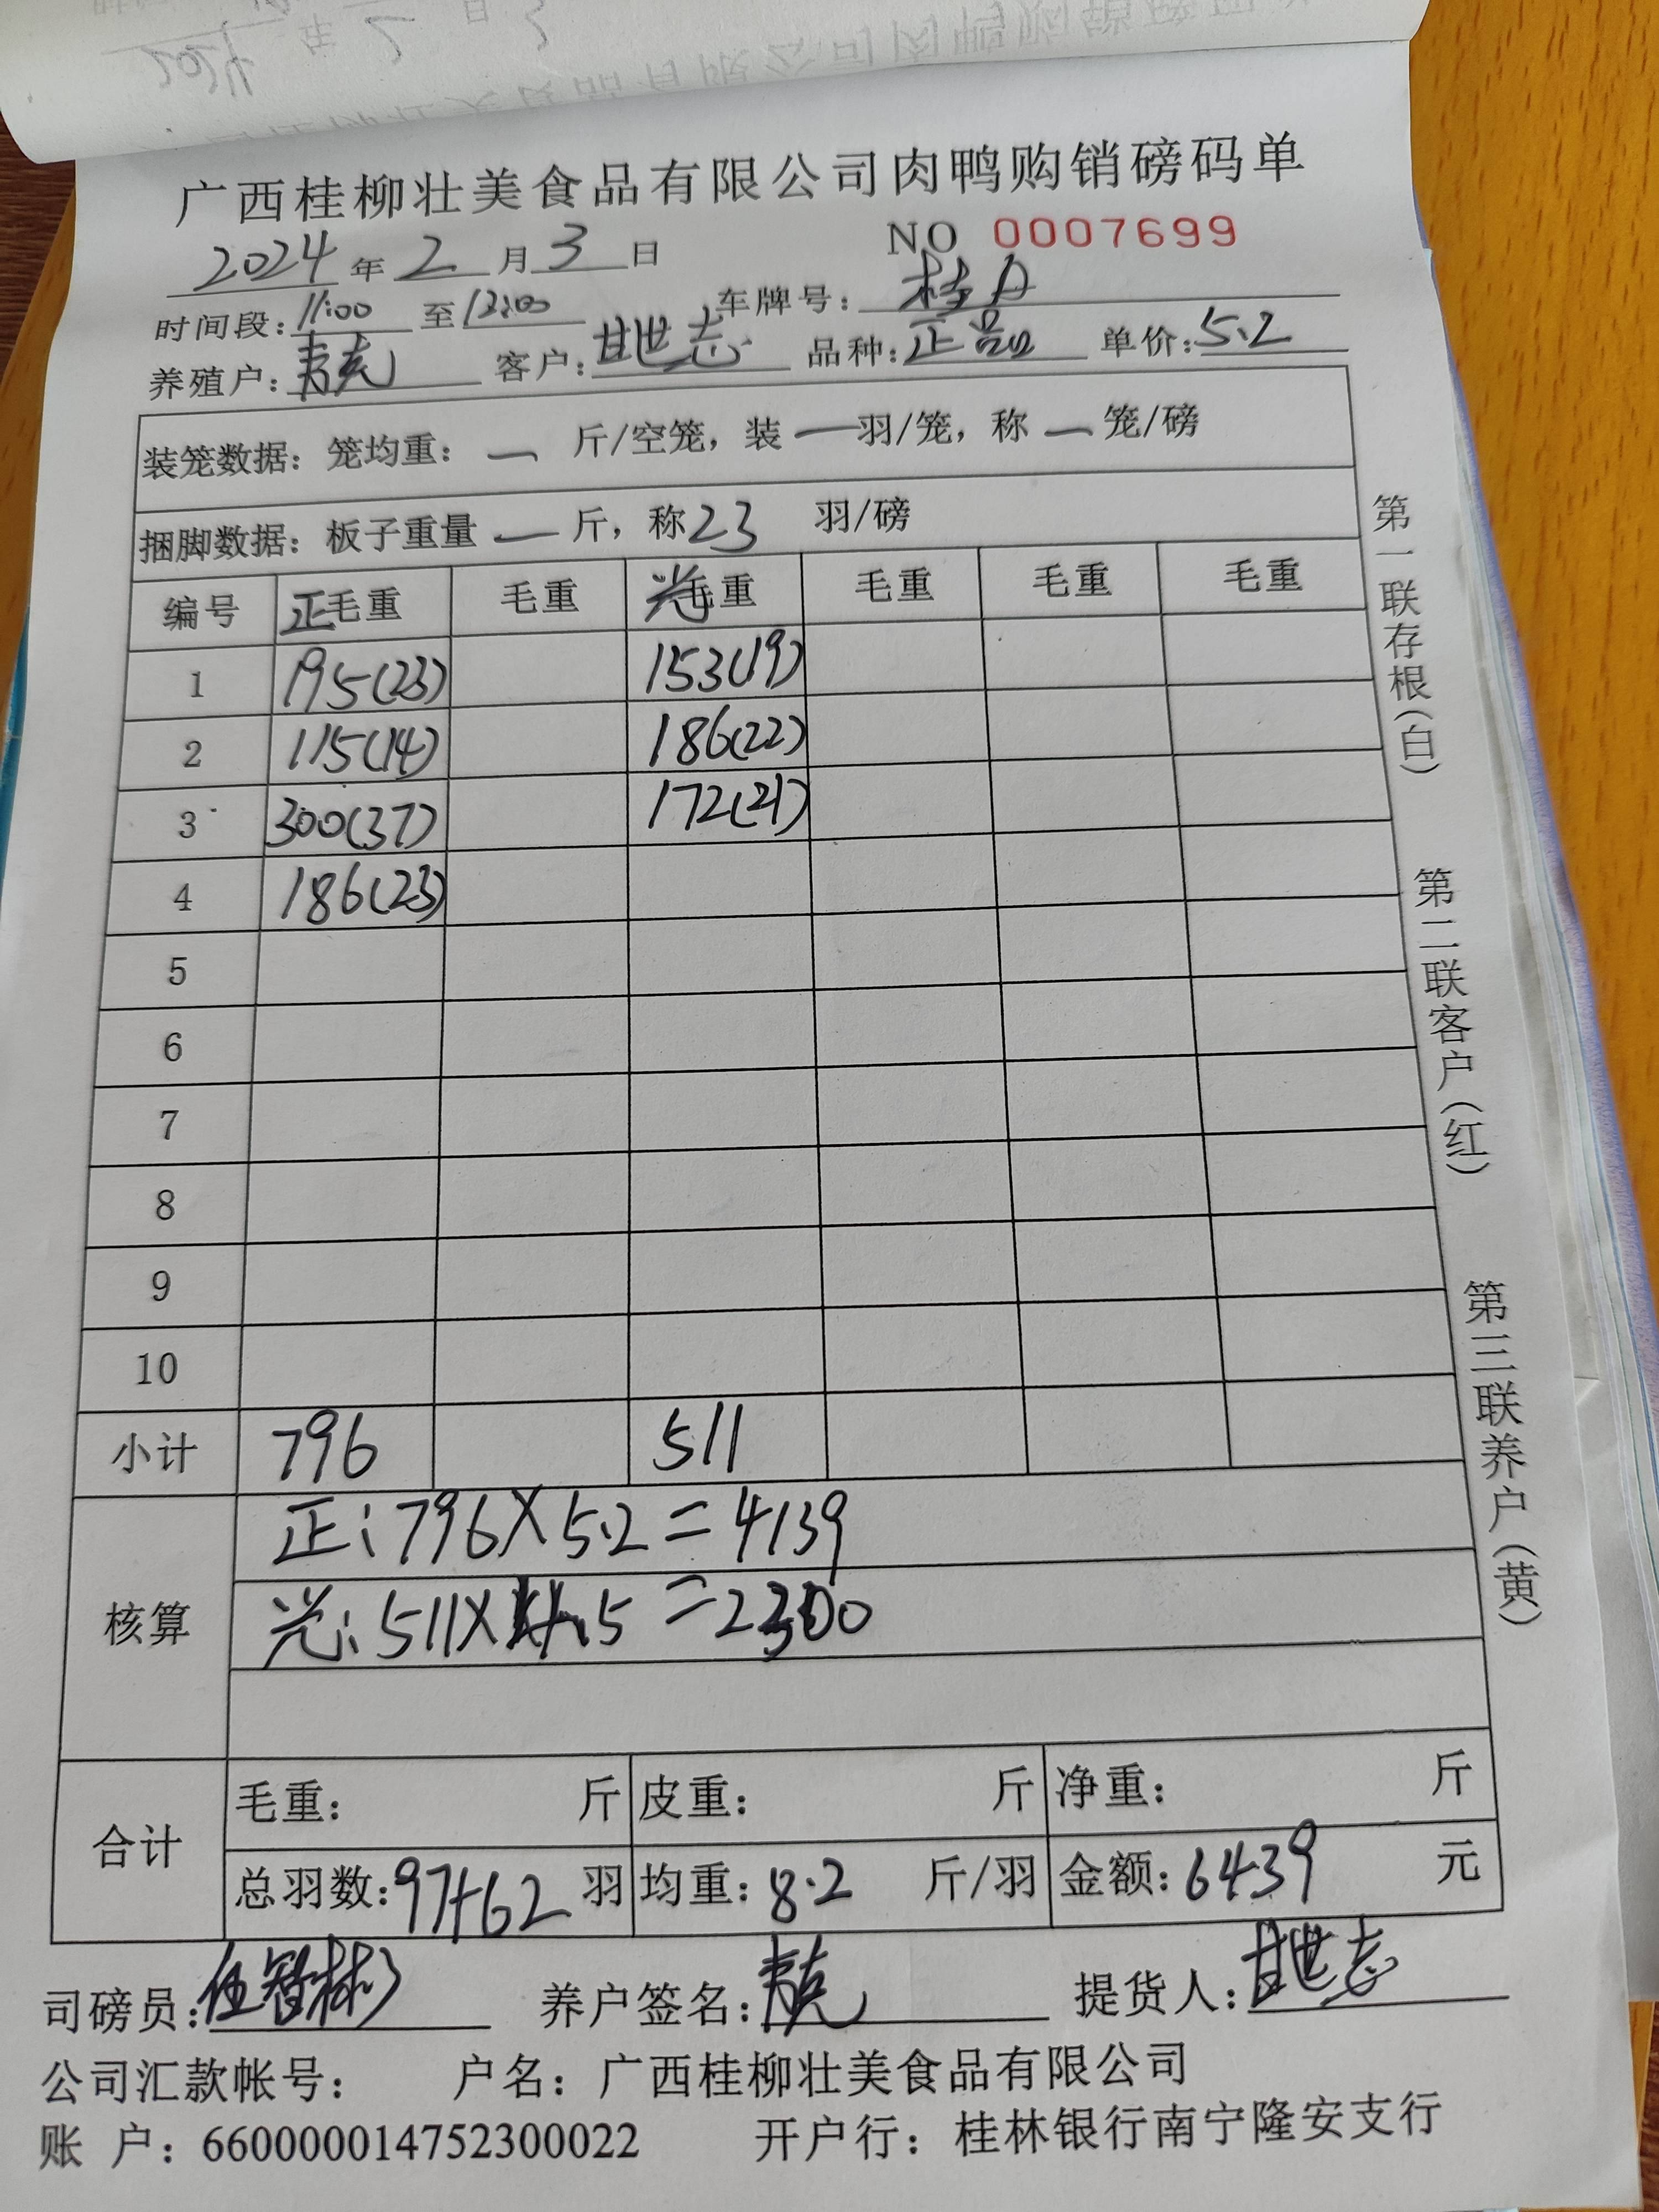 广西桂柳壮美食品有限公司肉鸭购销磅码单
2024年2月3日 NO 0007699
时间段:11:00至12:00 车牌号:桂A
养殖户:韦克 客户:甘世志 品种:正品 单价:5.2
装笼数据:笼均重:一斤/空笼,装一羽/笼,称一笼/磅
捆脚数据:板子重量一斤,称23羽/磅
编号 正毛重 毛重 光毛重 毛重 毛重 毛重
1 195(23) 153(19)
2 115(14) 186(22)
3 300(37) 172(21)
4 186(23)
5
6
7
8
9
10
小计 796 511
核算
正:796×5.2=4139
光:511×4.5=2300
合计
毛重: 斤 皮重: 斤 净重: 斤
总羽数:97+62羽 均重:8.2斤/羽 金额:6439元
司磅员:伍智彬 养户签名:韦克 提货人:甘世志
公司汇款帐号: 户名:广西桂柳壮美食品有限公司
账户:660000014752300022 开户行:桂林银行南宁隆安支行
第一联存根(白)
第二联客户(红)
第三联养户(黄)